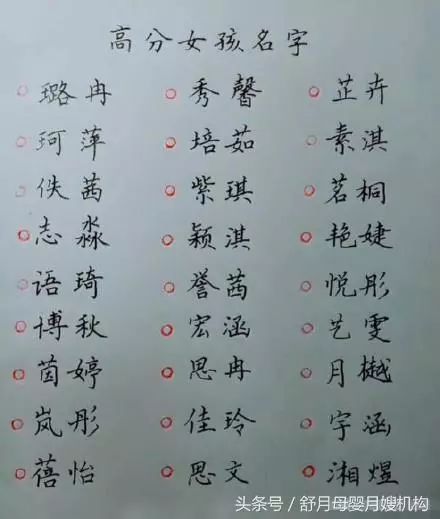 高分女孩名字
璐冉 秀馨 芷卉
珂萍 培茹 素淇
佚茜 紫琪 茗桐
志淼 颖淇 艳婕
语琦 誉茜 悦彤
博秋 宏涵 艺雯
茵婷 思冉 月樾
岚彤 佳玲 宇涵
蓓怡 思文 湘煜
头条号／舒月母婴月嫂机构